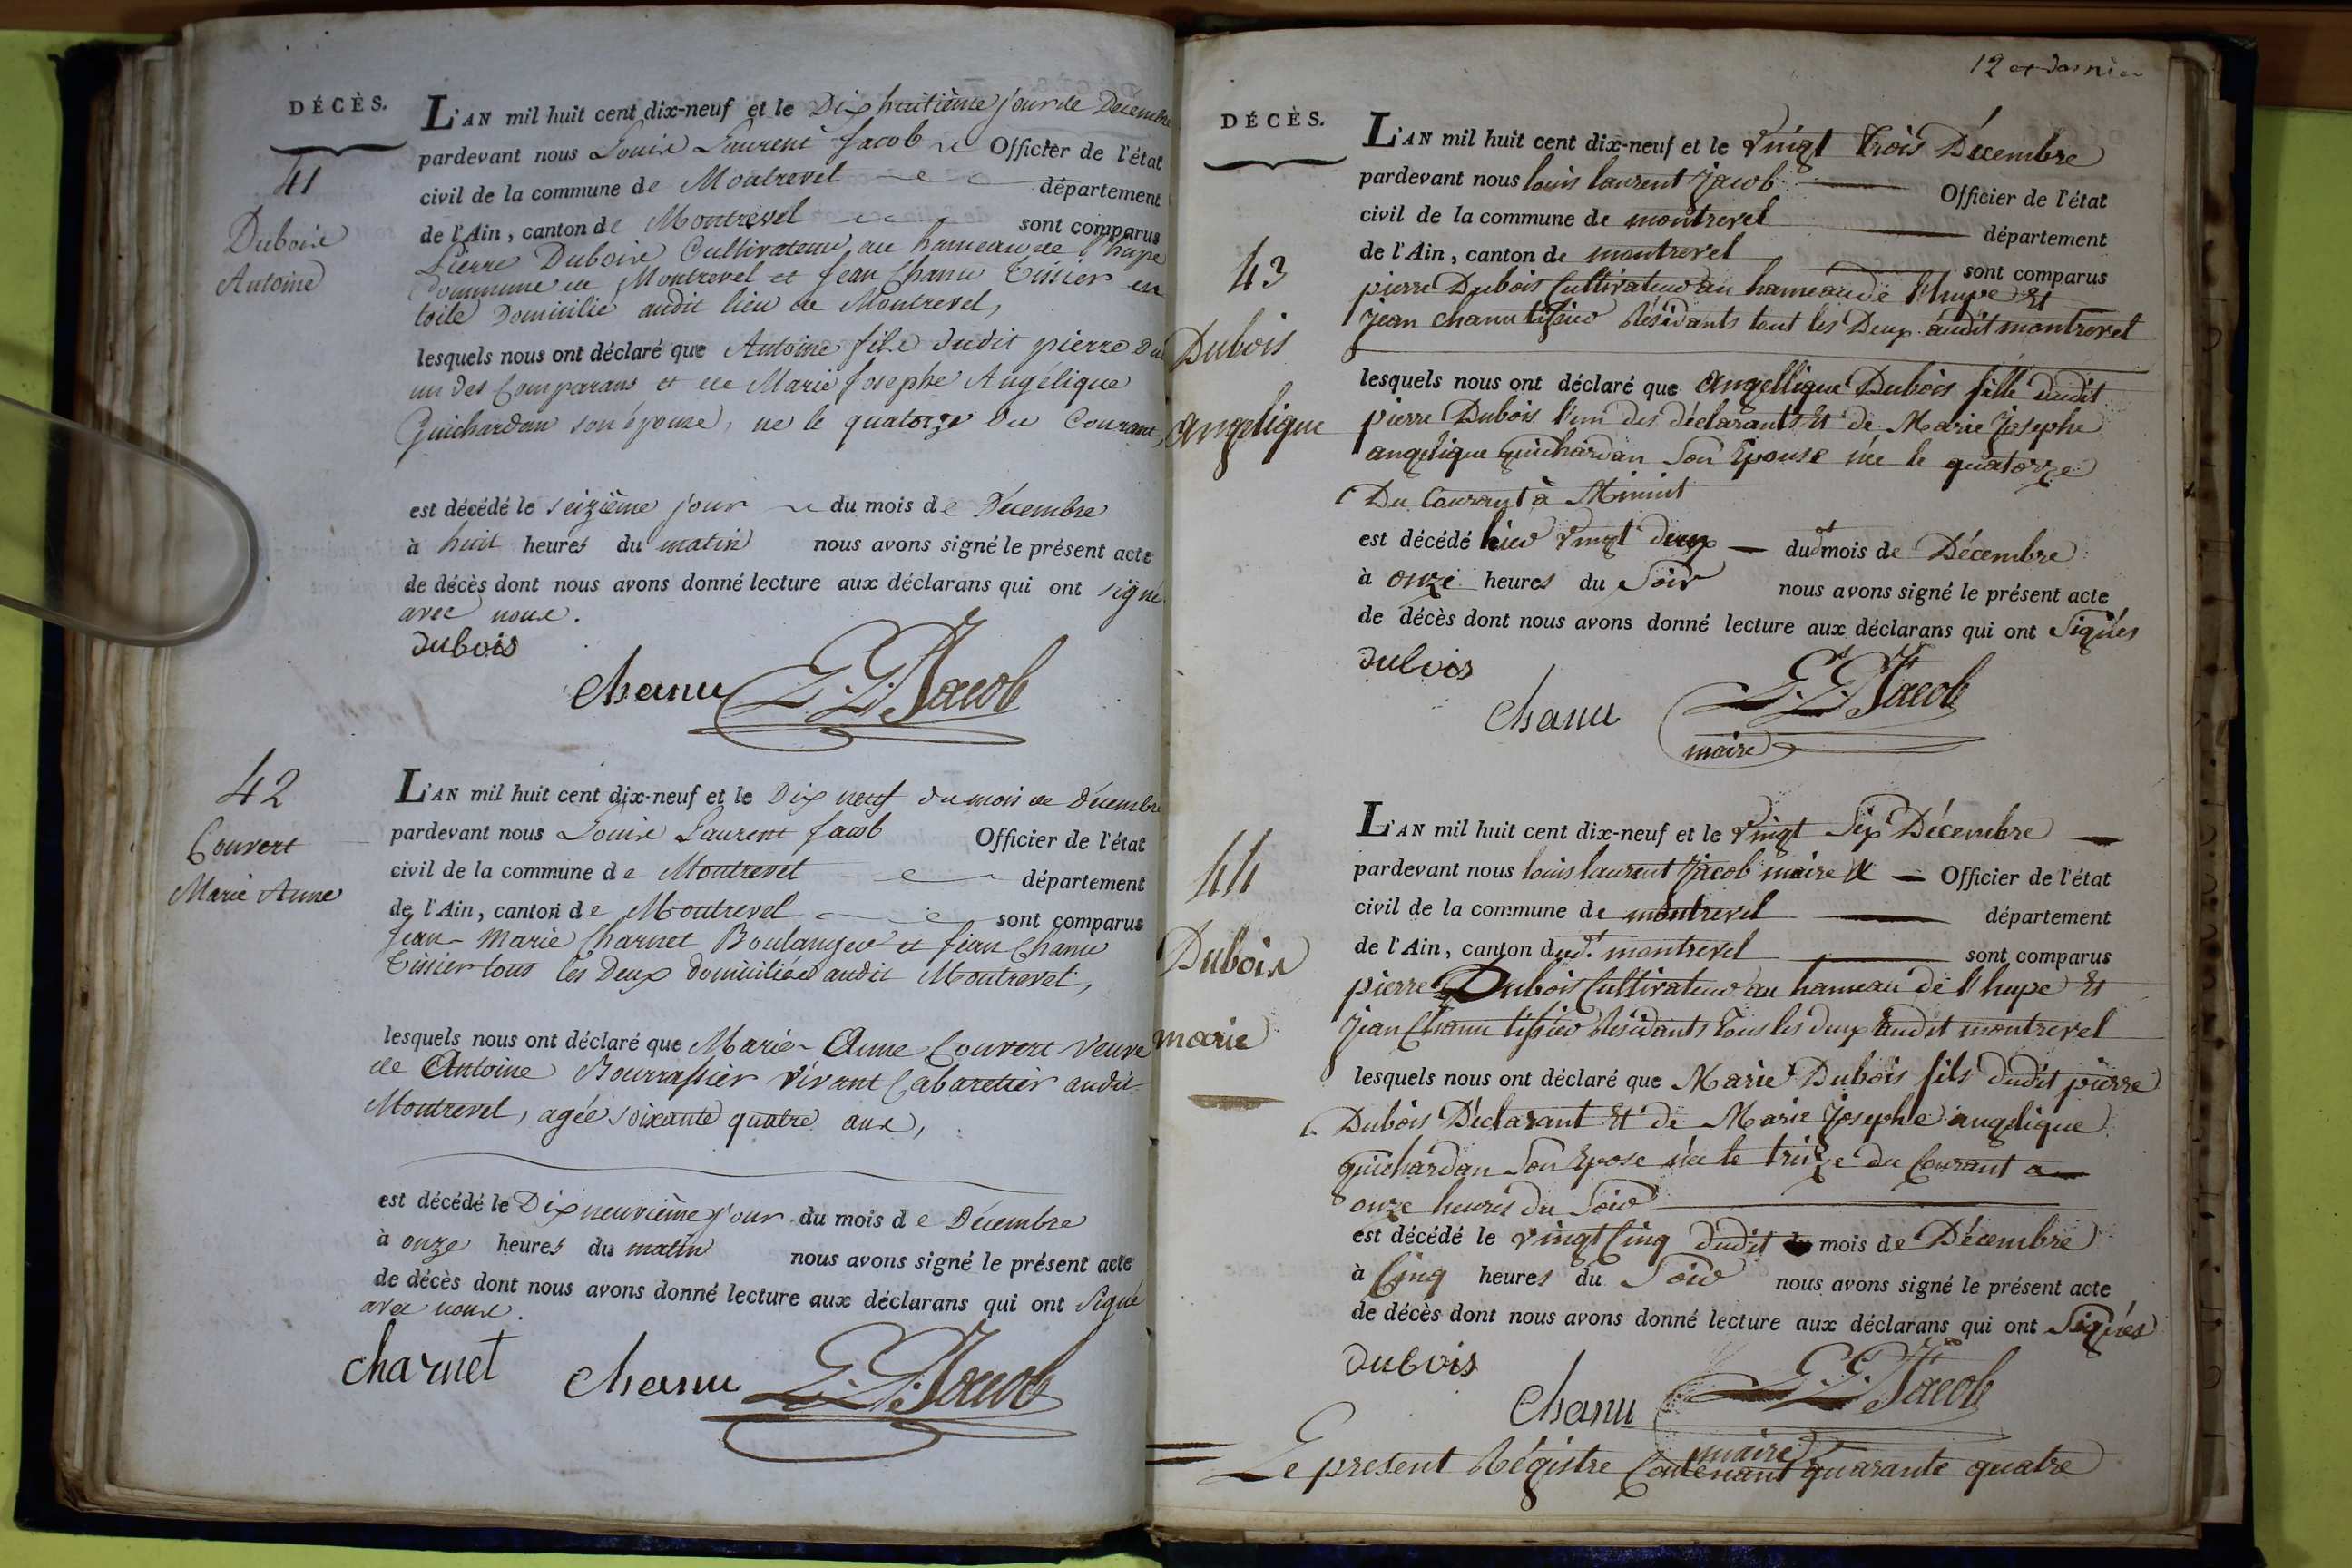 DÉCÈS.
41
Duboix
Antoine
L'AN mil huit cent dix-neuf et le Dix huitième jour de Décembre
pardevant nous Louis Laurent Jacob Officier de l'état
civil de la commune de Montrevel département
de l'Ain, canton de Montrevel sont comparus
Pierre Dubois Cultivateur au hameau de l'hupe
Commune de Montrevel et Jean Chanu Tissier en
toile Domicilié audit lieu de Montrevel,
lesquels nous ont déclaré que Antoine fils dudit pierre Du
un des Comparans et de Marie Josephe Angélique
Guichardan son épouse, né le quatorze du Courant,
est décédé le seizième jour du mois de Décembre
à huit heures du matin nous avons signé le présent acte
de décès dont nous avons donné lecture aux déclarans qui ont signé
avec nous.
Dubois
Chanu L. L. Jacob
42
Convert
Marie Anne
L'AN mil huit cent dix-neuf et le Dix neuf du mois de Décembre
pardevant nous Louis Laurent Jacob Officier de l'état
civil de la commune de Montrevel département
de l'Ain, canton de Montrevel sont comparus
Jean-Marie Charnet Boulanger et Jean Chanu
Tissier tous les Deux domiciliés audit Montrevel,
lesquels nous ont déclaré que Marie-Anne Convert veuve
de Antoine Bourrassier vivant Cabaretier audit
Montrevel, agée soixante quatre ans,
est décédé le Dix neuvième jour du mois de Décembre
à onze heures du matin nous avons signé le présent acte
de décès dont nous avons donné lecture aux déclarans qui ont Signé
avec nous.
Charnet Chanu L. L. Jacob
12 et dernier
DÉCÈS.
43
Dubois
angelique
L'AN mil huit cent dix-neuf et le vingt trois Décembre
pardevant nous louis laurent Jacob Officier de l'état
civil de la commune de montrevel département
de l'Ain, canton de montrevel sont comparus
pierre Dubois Cultivateur au hameau de l'hupe Et
Jean chanu tissier Résidants tout les Deux audit montrevel
lesquels nous ont déclaré que angellique Dubois fille dudit
pierre Dubois l'un des déclarants Et de Marie Josephe
angelique guichardan Son Epouse née le quatorze
Du Courant à Minuit
est décédé hier vingt deux dud.t mois de Décembre
à onze heures du Soir nous avons signé le présent acte
de décès dont nous avons donné lecture aux déclarans qui ont Signés
Dubois
Chanu L. L. Jacob
maire
44
Dubois
marie
L'AN mil huit cent dix-neuf et le vingt Six Décembre
pardevant nous louis laurent Jacob maire & Officier de l'état
civil de la commune de montrevel département
de l'Ain, canton dud.t montrevel sont comparus
pierre Dubois Cultivateur au hameau de l'hupe Et
Jean Chanu tissier Résidants Tous les deux audit montrevel
lesquels nous ont déclaré que Marie Dubois fils dudit pierre
Dubois Déclarant Et de Marie Josephe angelique
guichardan Son Epose née le treize du Courant a
onze heures du Soir
est décédé le vingt Cinq dudit mois de Décembre
à Cinq heures du Soir nous avons signé le présent acte
de décès dont nous avons donné lecture aux déclarans qui ont Signés
Dubois
Chanu L. L. Jacob
maire
Le present Régistre Contenant quarante quatre